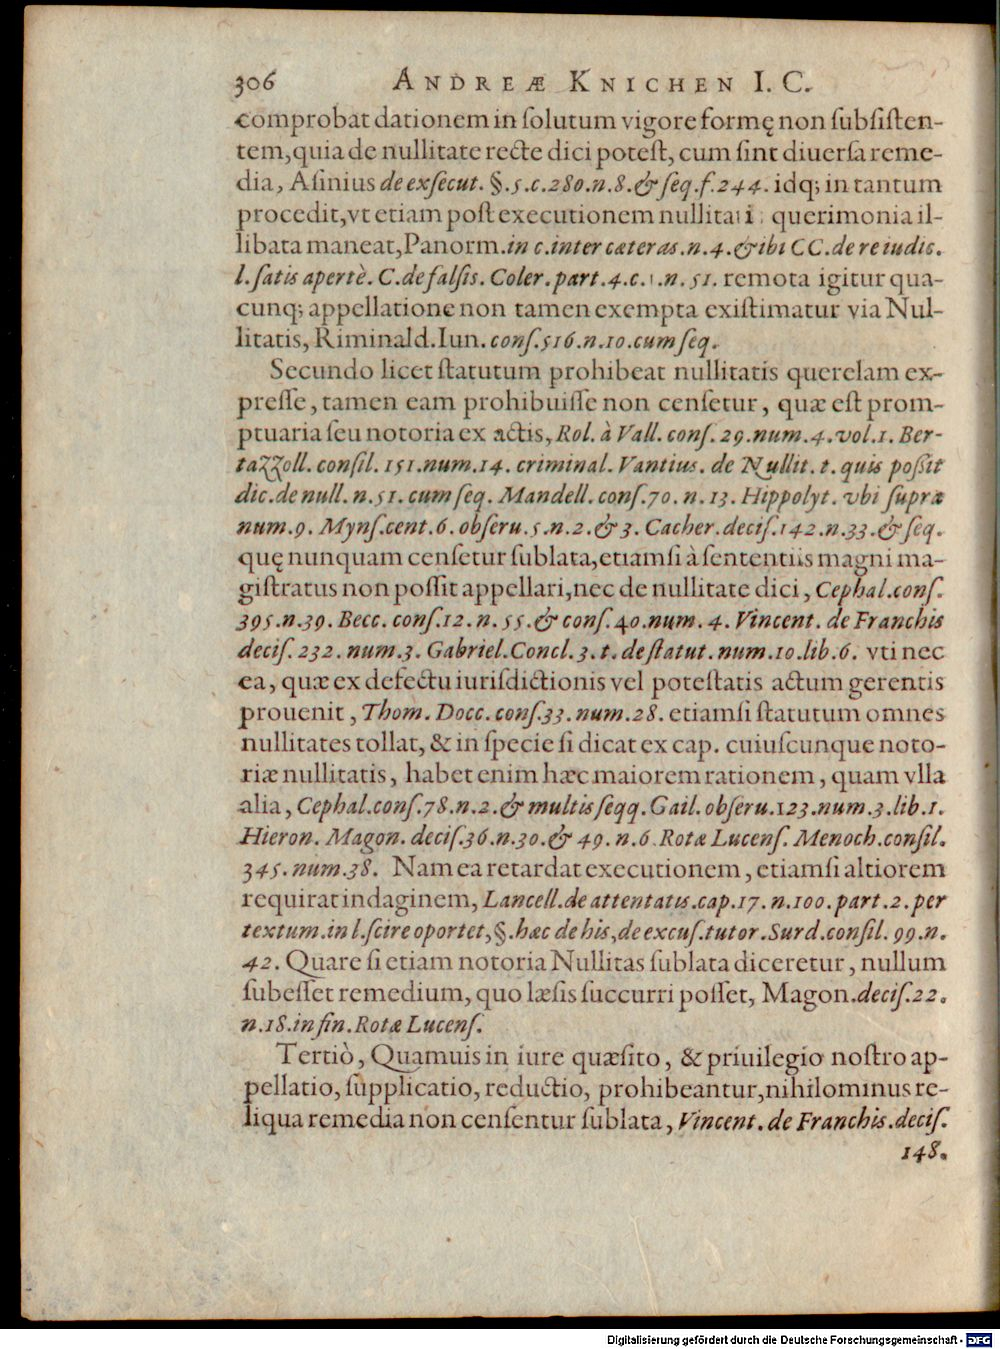 306 ANDREÆ KNICHEN I. C.
comprobat dationem in ſolutum vigore formę non ſubſiſten-
tem, quia de nullitate recte dici poteſt, cum ſint diuerſa reme-
dia, Aſinius de exſecut. §. 5. c. 280. n. 8. & ſeq. f. 244. idq; in tantum
procedit, vt etiam poſt executionem nullitati querimonia il-
libata maneat, Panorm. in c. inter cæteras. n. 4. & ibi CC. de re iudic.
l. ſatis apertè. C. de falſis. Coler. part. 4. c. 1. n. 51. remota igitur qua-
cunq; appellatione non tamen exempta exiſtimatur via Nul-
litatis, Riminald. Iun. conſ. 516. n. 10. cum ſeq.
Secundo licet ſtatutum prohibeat nullitatis querelam ex-
preſſe, tamen eam prohibuiſſe non cenſetur, quæ eſt prom-
ptuaria ſeu notoria ex actis, Rol. à Vall. conſ. 29. num. 4. vol. 1. Ber-
tazzoll. conſil. 151. num. 14. criminal. Vantius. de Nullit. t. quis poſſit
dic. de null. n. 51. cum ſeq. Mandell. conſ. 70. n. 13. Hippolyt. vbi ſupra
num. 9. Mynſ. cent. 6. obſeru. 5. n. 2. & 3. Cacher. deciſ. 142. n. 33. & ſeq.
quę nunquam cenſetur ſublata, etiamſi à ſententiis magni ma-
giſtratus non poſſit appellari, nec de nullitate dici, Cephal. conſ.
395. n. 39. Becc. conſ. 12. n. 55. & conſ. 40. num. 4. Vincent. de Franchis
deciſ. 232. num. 3. Gabriel. Concl. 3. t. de ſtatut. num. 10. lib. 6. vti nec
ea, quæ ex defectu iurisdictionis vel poteſtatis actum gerentis
prouenit, Thom. Docc. conſ. 33. num. 28. etiamſi ſtatutum omnes
nullitates tollat, & in ſpecie ſi dicat ex cap. cuiuſcunque noto-
riæ nullitatis, habet enim hæc maiorem rationem, quam vlla
alia, Cephal. conſ. 78. n. 2. & multis ſeqq. Gail. obſeru. 123. num. 3. lib. 1.
Hieron. Magon. deciſ. 36. n. 30. & 49. n. 6. Rotæ Lucenſ. Menoch. conſil.
345. num. 38. Nam ea retardat executionem, etiamſi altiorem
requirat indaginem, Lancell. de attentatis. cap. 17. n. 100. part. 2. per
textum. in l. ſcire oportet, §. hæc de his, de excuſ. tutor. Surd. conſil. 99. n.
42. Quare ſi etiam notoria Nullitas ſublata diceretur, nullum
ſubeſſet remedium, quo læſis ſuccurri poſſet, Magon. deciſ. 22.
n. 18. in fin. Rotæ Lucenſ.
Tertiò, Quamuis in iure quæſito, & priuilegio noſtro ap-
pellatio, ſupplicatio, reductio, prohibeantur, nihilominus re-
liqua remedia non cenſentur ſublata, Vincent. de Franchis. deciſ.
148.
Digitalisierung gefördert durch die Deutsche Forschungsgemeinschaft - DFG